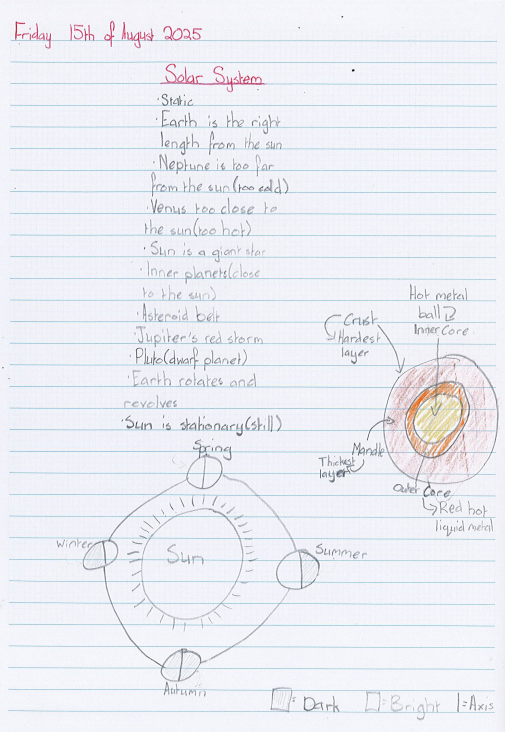 Friday 15th of August 2025
Solar System
· Static
· Earth is the right
length from the sun
· Neptune is too far
from the sun (too cold)
· Venus too close to
the sun (too hot)
· Sun is a giant star
· Inner planets (close
to the sun)
· Asteroid belt
· Jupiter's red storm
· Pluto (dwarf planet)
· Earth rotates and
revolves
· Sun is stationary (still)
Hot metal
ball
Inner Core
Crust
Hardest
layer
Mandle
Thickest
layer
Outer Core
Red hot
liquid metal
Spring
Winter
Sun
Summer
Autumn
= Dark
= Bright
| = Axis